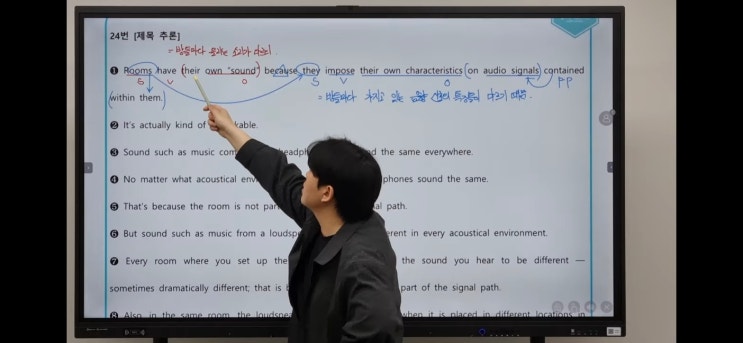 24번 [제목 추론]
= 방들마다 소리가 다르다.
❶ Rooms have (their own "sound") because they impose their own characteristics (on audio signals) contained
S V O S V O PP
(within them.)
= 방들마다 가지고 있는 특징들이 다르기 때문.
❷ It's actually kind of
❸ Sound such as music the same everywhere.
❹ No matter what acoustical phones sound the same.
❺ That's because the room is not path.
❻ But sound such as music from a in every acoustical environment.
❼ Every room where you set up the the sound you hear to be different —
sometimes dramatically different; that is part of the signal path.
❽ Also, in the same room, the when it is placed in different locations in